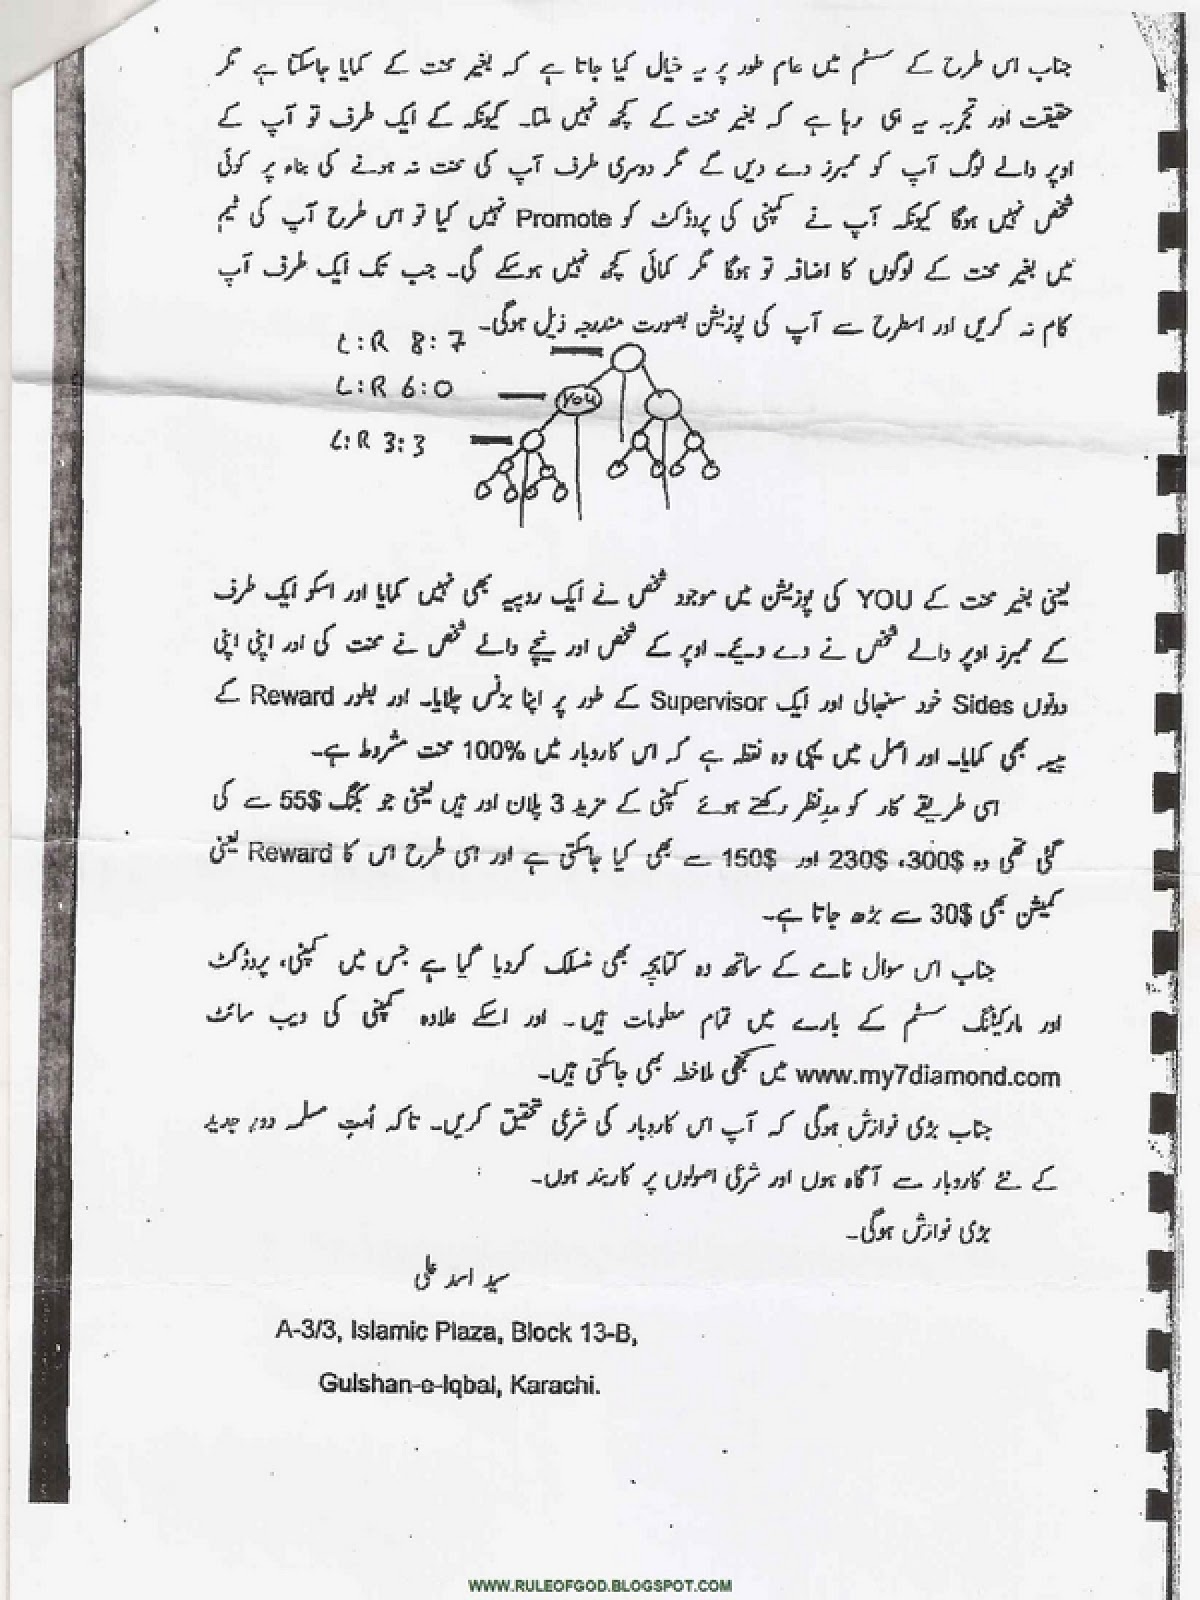 جناب اس طرح کے سسٹم میں عام طور پر یہ خیال کیا جاتا ہے کہ بغیر محنت کے کمایا جاسکتا ہے مگر
حقیقت اور تجربہ یہ ہی رہا ہے کہ بغیر محنت کے کچھ نہیں ملتا۔ کیونکہ کے ایک طرف تو آپ کے
اوپر والے لوگ آپ کو ممبرز دے دیں گے مگر دوسری طرف آپ کی محنت نہ ہونے کی بناء پر کوئی
شخص نہیں ہوگا کیونکہ آپ نے کمپنی کی پروڈکٹ کو Promote نہیں کیا تو اس طرح آپ کی ٹیم
میں بغیر محنت کے لوگوں کا اضافہ تو ہوگا مگر کمائی کچھ نہیں ہوسکے گی۔ جب تک ایک طرف آپ
کام نہ کریں اور اسطرح سے آپ کی پوزیشن بصورت مندرجہ ذیل ہوگی۔
L:R 8:7
L:R 6:0
YOU
L:R 3:3
یعنی بغیر محنت کے YOU کی پوزیشن میں موجود شخص نے ایک روپیہ بھی نہیں کمایا اور اسکو ایک طرف
کے ممبرز اوپر والے شخص نے دے دیئے۔ اوپر کے شخص اور نیچے والے شخص نے محنت کی اور اپنی اپنی
دونوں Sides خود سنبھالی اور ایک Supervisor کے طور پر اپنا بزنس چلایا۔ اور بطور Reward کے
پیسہ بھی کمایا۔ اور اصل میں یہی وہ نقطہ ہے کہ اس کاروبار میں 100% محنت مشروط ہے۔
اسی طریقے کار کو مدِنظر رکھتے ہوئے کمپنی کے مزید 3 پلان اور ہیں یعنی جو بکنگ 55$ سے کی
گئی تھی وہ 300$، 230$ اور 150$ سے بھی کیا جاسکتی ہے اور اسی طرح اس کا Reward یعنی
کمیشن بھی 30$ سے بڑھ جاتا ہے۔
جناب اس سوال نامے کے ساتھ وہ کتابچہ بھی منسلک کردیا گیا ہے جس میں کمپنی، پروڈکٹ
اور مارکیٹنگ سسٹم کے بارے میں تمام معلومات ہیں۔ اور اسکے علاوہ کمپنی کی ویب سائٹ
www.my7diamond.com میں بھی ملاحظہ بھی جاسکتی ہیں۔
جناب بڑی نوازش ہوگی کہ آپ اس کاروبار کی شرعی تحقیق کریں۔ تاکہ اُمتِ مسلمہ دورِ جدید
کے نئے کاروبار سے آگاہ ہوں اور شرعی اصولوں پر کاربند ہوں۔
بڑی نوازش ہوگی۔
سید اسد علی
A-3/3, Islamic Plaza, Block 13-B,
Gulshan-e-Iqbal, Karachi.
WWW.RULEOFGOD.BLOGSPOT.COM